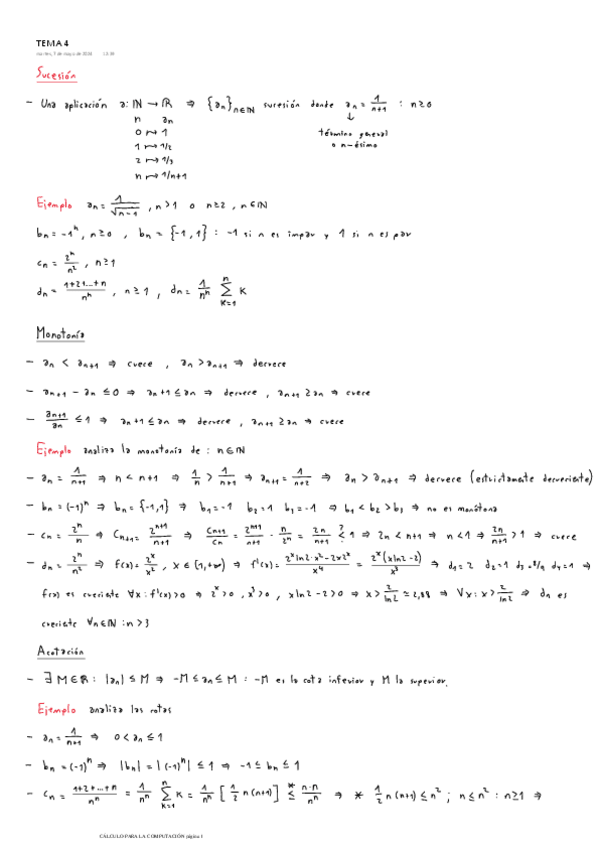 TEMA 4
martes, 7 de mayo de 2024
Sucesión
– Una aplicación a: ℕ → ℝ ⇒ {an}n∈ℕ sucesión donde an = 1/(n+1) : n≥0
n an ↓
0 ↦ 1 término general
1 ↦ 1/2 o n-ésimo
2 ↦ 1/3
n ↦ 1/n+1
Ejemplo an = 1/√(n-1) , n>1 o n≥2 , n∈ℕ
bn = -1^n , n≥0 , bn = {-1,1} : -1 si n es impar y 1 si n es par
cn = 2^n/n^2 , n≥1
dn = (1+2+...+n)/n^n , n≥1 , dn = 1/n^n Σ_{k=1}^{n} k
Monotonía
– an < an+1 ⇒ crece , an > an+1 ⇒ decrece
– an+1 - an ≤ 0 ⇒ an+1 ≤ an ⇒ decrece , an+1 ≥ an ⇒ crece
– an+1/an ≤ 1 ⇒ an+1 ≤ an ⇒ decrece , an+1 ≥ an ⇒ crece
Ejemplo analiza la monotonía de : n∈ℕ
– an = 1/(n+1) ⇒ n < n+1 ⇒ 1/n > 1/(n+1) ⇒ an+1 = 1/(n+2) ⇒ an > an+1 ⇒ decrece (estrictamente decreciente)
– bn = (-1)^n ⇒ bn = {-1,1} ⇒ b1 = -1 b2 = 1 b3 = -1 ⇒ b1 < b2 > b3 ⇒ no es monótona
– cn = 2^n/n ⇒ cn+1 = 2^(n+1)/(n+1) ⇒ cn+1/cn = 2^(n+1)/(n+1) · n/2^n = 2n/(n+1) <? 1 ⇒ 2n < n+1 ⇒ n < 1 ⇒ 2n/(n+1) > 1 ⇒ crece
– dn = 2^n/n^2 ⇒ f(x) = 2^x/x^2 , x ∈ [1,+∞) ⇒ f'(x) = (2^x ln2·x^2 - 2x2^x)/x^4 = 2^x(xln2-2)/x^3 ⇒ d1 = 2 d2 = 1 d3 = 8/9 d4 = 1 ⇒
f(x) es creciente ∀x : f'(x) > 0 ⇒ 2^x > 0 , x^3 > 0 , xln2 - 2 > 0 ⇒ x > 2/ln2 ≃ 2,88 ⇒ ∀x : x > 2/ln2 ⇒ dn es
creciente ∀n∈ℕ : n > 3
Acotación
– ∃ M∈ℝ : |an| ≤ M ⇒ -M ≤ an ≤ M : -M es la cota inferior y M la superior.
Ejemplo analiza las cotas
– an = 1/(n+1) ⇒ 0 < an ≤ 1
– bn = (-1)^n ⇒ |bn| = |(-1)^n| ≤ 1 ⇒ -1 ≤ bn ≤ 1
– cn = (1+2+...+n)/n^n = 1/n^n Σ_{k=1}^{n} k = 1/n^n [1/2 n(n+1)] ≤* n·n/n^n ⇒ * 1/2 n(n+1) ≤ n^2 ; n ≤ n^2 : n≥1 ⇒
CÁLCULO PARA LA COMPUTACIÓN página 1